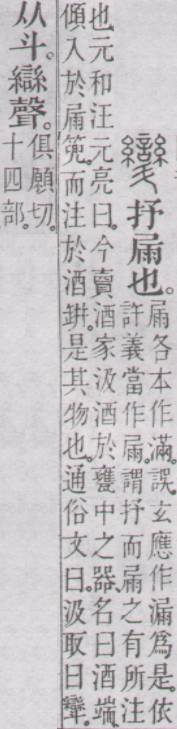 㪻抒屚也。
屚各本作滿。誤。玄應作漏爲是。依
許義當作屚。謂抒而屚之有所注
也。元和汪元亮曰。今賣酒家汲酒於甕中之器。名曰酒端。
傾入於屚筦。而注於酒缾。是其物也。通俗文曰。汲取曰㪻。
从斗。䜌聲。
俱願切。
十四部。